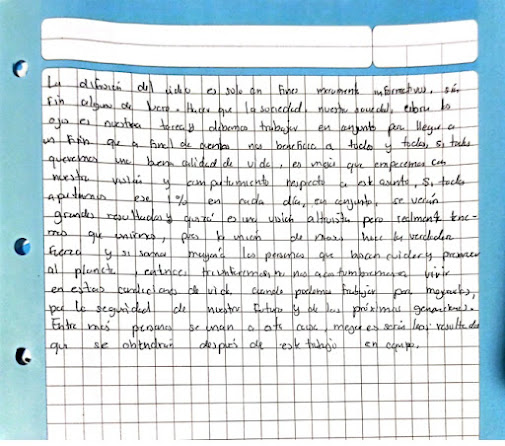 La difusión del video es solo con fines meramente informativos, sin
fin alguno de lucro. Hacer que la sociedad, nuestra sociedad, abra los
ojos es nuestra tarea y debemos trabajar en conjunto para llegar a
un fin que a final de cuentas nos beneficia a todos y todas, si todos
queremos una buena calidad de vida, es mejor que empecemos con
nuestra visión y comportamiento respecto a este asunto, Si todos
aportamos ese 1% en cada día, en conjunto, se verán
grandes resultados y quizá es una visión altruista pero realmente tene-
mos que unirnos, pues la unión de masas hace la verdadera
fuerza y si somos mayoría las personas que buscan cuidar y
al planeta, entonces triunfaremos, no nos acostumbremos a vivir
en estas condiciones de vida cuando podemos trabajar por mejores,
por la seguridad de nuestro futuro y de las próximas generaciones.
Entre más personas se unan a esta causa, mejores serán los resultados
que se obtendrán después de este trabajo en equipo.